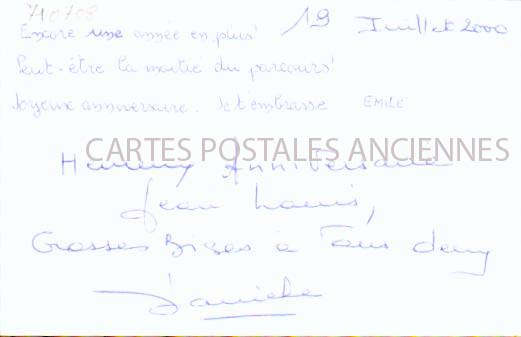 710708
19 Juillet 2000
Encore une année en plus!
Peut-être la moitié du parcours!
Joyeux anniversaire. Je t'embrasse EMILE
CARTES POSTALES ANCIENNES
Anniversaire
Jean Louis,
Grosses Bizes à Tous deux
Danièle